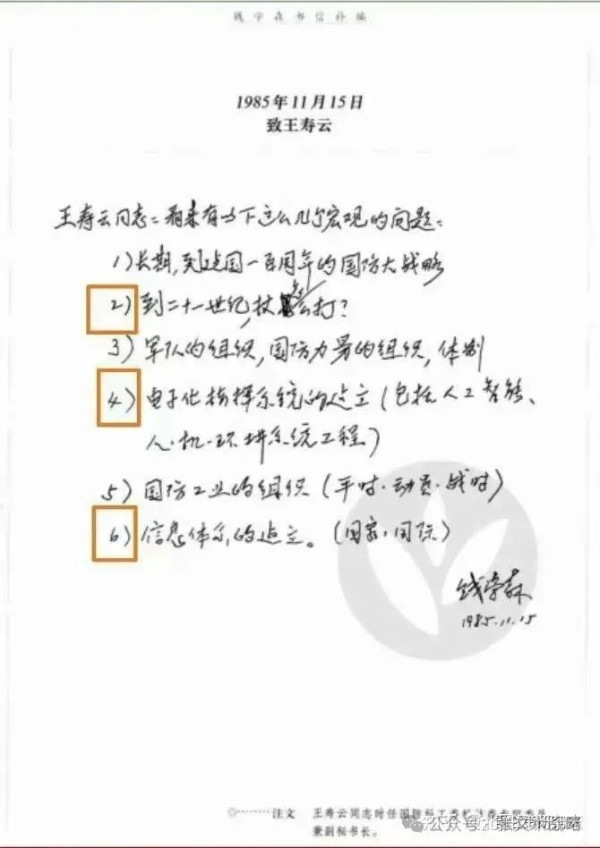 钱学森书信补编
1985年11月15日
致王寿云
王寿云同志：看来有以下这么几个宏观的问题：
1）长期，到建国一百周年的国防大战略
2）到二十一世纪，仗怎么打？
3）军队的组织，国防力量的组织，体制
4）电子化指挥系统的建立（包括人工智能、
人·机·环境系统工程）
5）国防工业的组织（平时·动员·战时）
6）信息体系的建立。（国家·国际）
钱学森
1985.11.15
注文 王寿云同志时任国防科工委科技委专职委员
兼副秘书长。
公众号